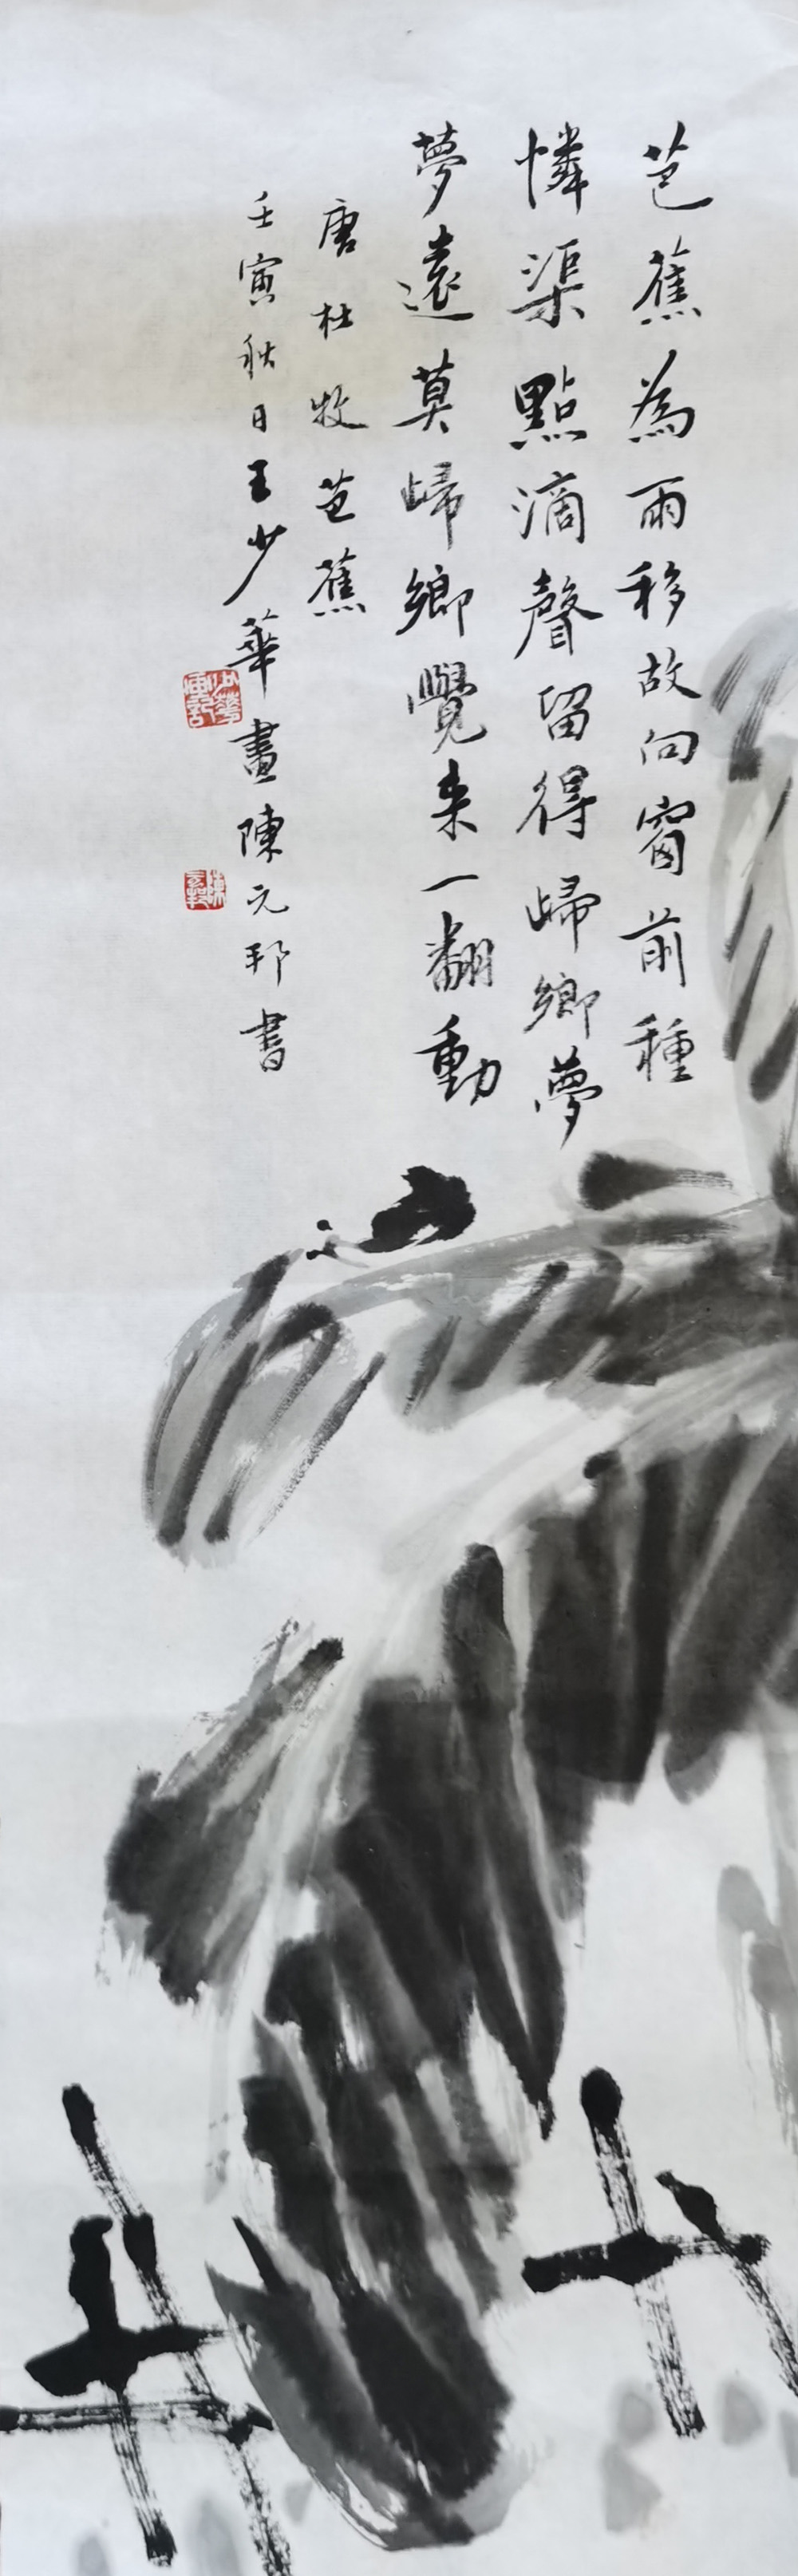 芭蕉為雨移故向窗前種
憐渠點滴聲留得歸鄉夢
夢遠莫歸鄉覺来一翻動
唐杜牧芭蕉
壬寅秋日王少華畫陳元邦書